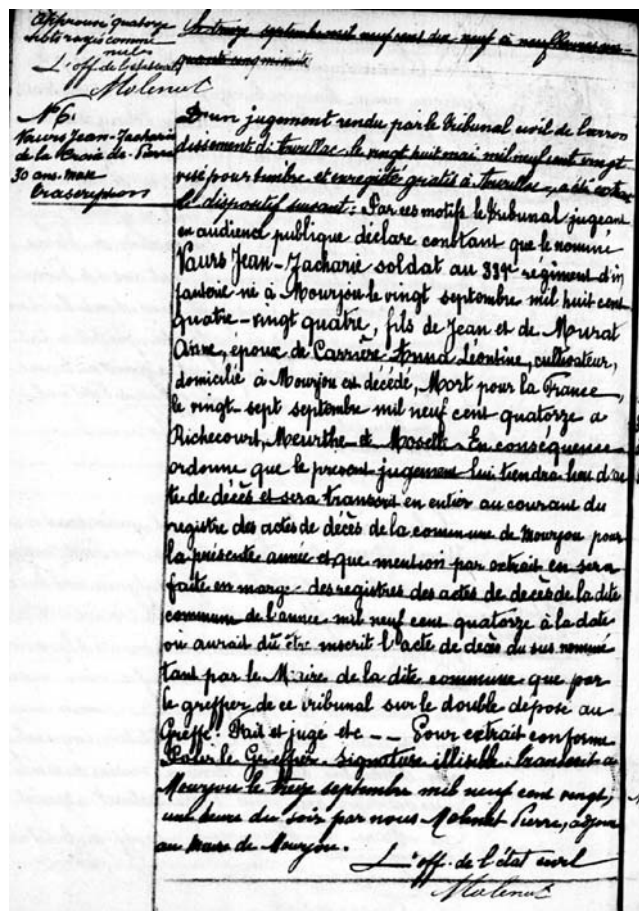 Approuvé quatorze
mots rayés comme
nuls
L'off. de l'état civil
Molenat
Le treize septembre mil neuf cent dix neuf à neuf heures
quarante cinq minutes
N° 6
Vaurs Jean-Zacharie
de la Croix de Pierre
30 ans. Marié
Transcription
D'un jugement rendu par le Tribunal civil de l'arron
dissement de Aurillac le vingt huit mai mil neuf cent vingt
visé pour timbre et enregistré gratis à Aurillac, a été extrait
le dispositif suivant: Par ces motifs le tribunal jugeant
en audience publique déclare constant que le nommé
Vaurs Jean-Zacharie soldat au 339e régiment d'in
fanterie né à Mourjou le vingt septembre mil huit cent
quatre-vingt quatre, fils de Jean et de Mourat
Anne, époux de Carrière Anna Léontine, cultivateur,
domicilié à Mourjou est décédé, Mort pour la France,
le vingt-sept septembre mil neuf cent quatorze à
Richecourt, Meurthe-et-Moselle. En conséquence
ordonne que le présent jugement lui tiendra lieu d'ac
te de décès et sera transcrit en entier au courant du
registre des actes de décès de la commune de Mourjou pour
la présente année et que mention par extrait en sera
faite en marge des registres des actes de décès de la dite
commune de l'année mil neuf cent quatorze à la date
où aurait dû être inscrit l'acte de décès du sus nommé
tant par le Maire de la dite commune que par
le greffier de ce tribunal sur le double déposé au
Greffe. Fait et jugé etc -- Pour extrait conforme
Pour le Greffier signature illisible. Transcrit à
Mourjou le treize septembre mil neuf cent vingt,
une heure du soir par nous Molenat Pierre, adjoint
au Maire de Mourjou.
L'off. de l'état civil
Molenat